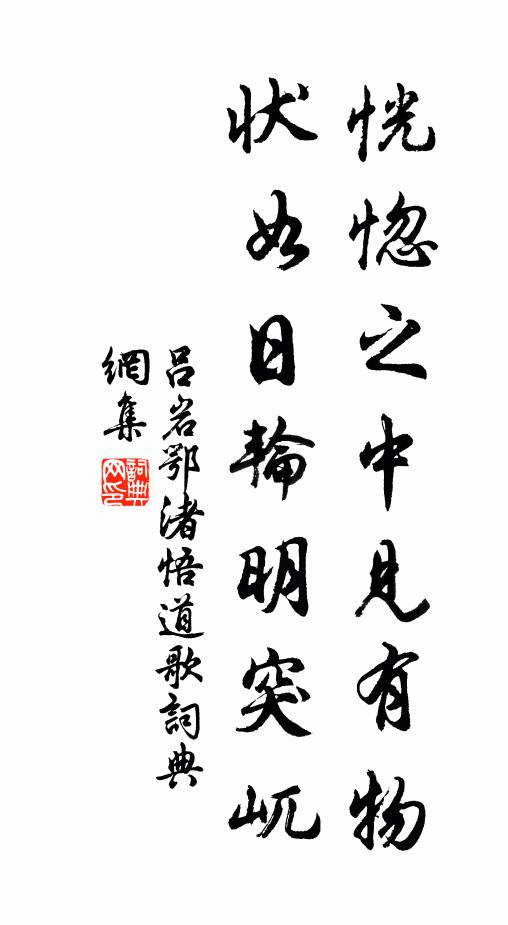 恍惚之中見有物
狀如日輪明突屼
呂岩鄂渚悟道歌詞典
網集
詞典網印